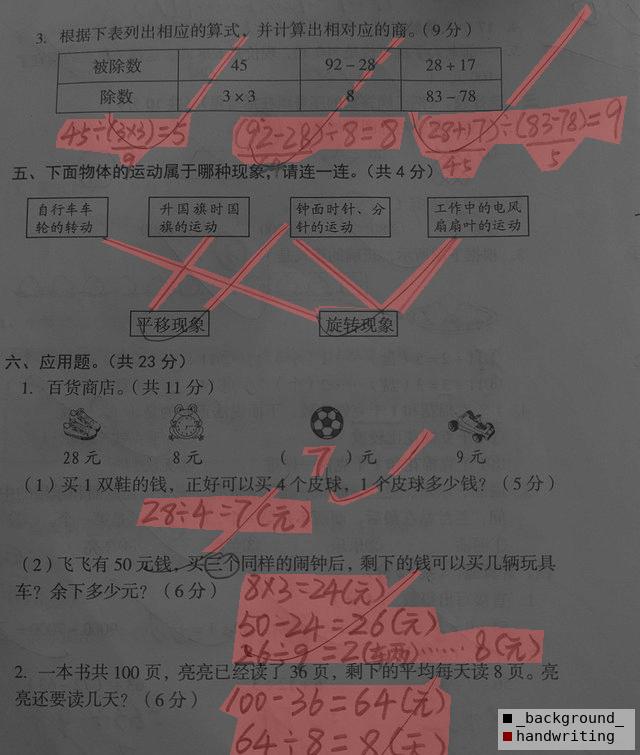 3. 根据下表列出相应的算式，并计算出相对应的商。(9分)
被除数 45 92－28 28＋17
除数 3×3 8 83－78
45÷(3×3)=5 (92-28)÷8=8 (28+17)÷(83-78)=9
9 45 5
五、下面物体的运动属于哪种现象，请连一连。(共4分)
自行车车轮的转动 升国旗时国旗的运动 钟面时针、分针的运动 工作中的电风扇扇叶的运动
平移现象 旋转现象
六、应用题。(共23分)
1. 百货商店。(共11分)
28元 8元 ( 7 )元 9元
(1)买1双鞋的钱，正好可以买4个皮球，1个皮球多少钱？(5分)
28÷4=7(元)
(2)飞飞有50元钱，买三个同样的闹钟后，剩下的钱可以买几辆玩具
车？余下多少元？(6分)
8×3=24(元)
50-24=26(元)
26÷9=2(辆)……8(元)
2. 一本书共100页，亮亮已经读了36页，剩下的平均每天读8页。亮
亮还要读几天？(6分)
100-36=64(元)
64÷8=8(天)
_background_
handwriting